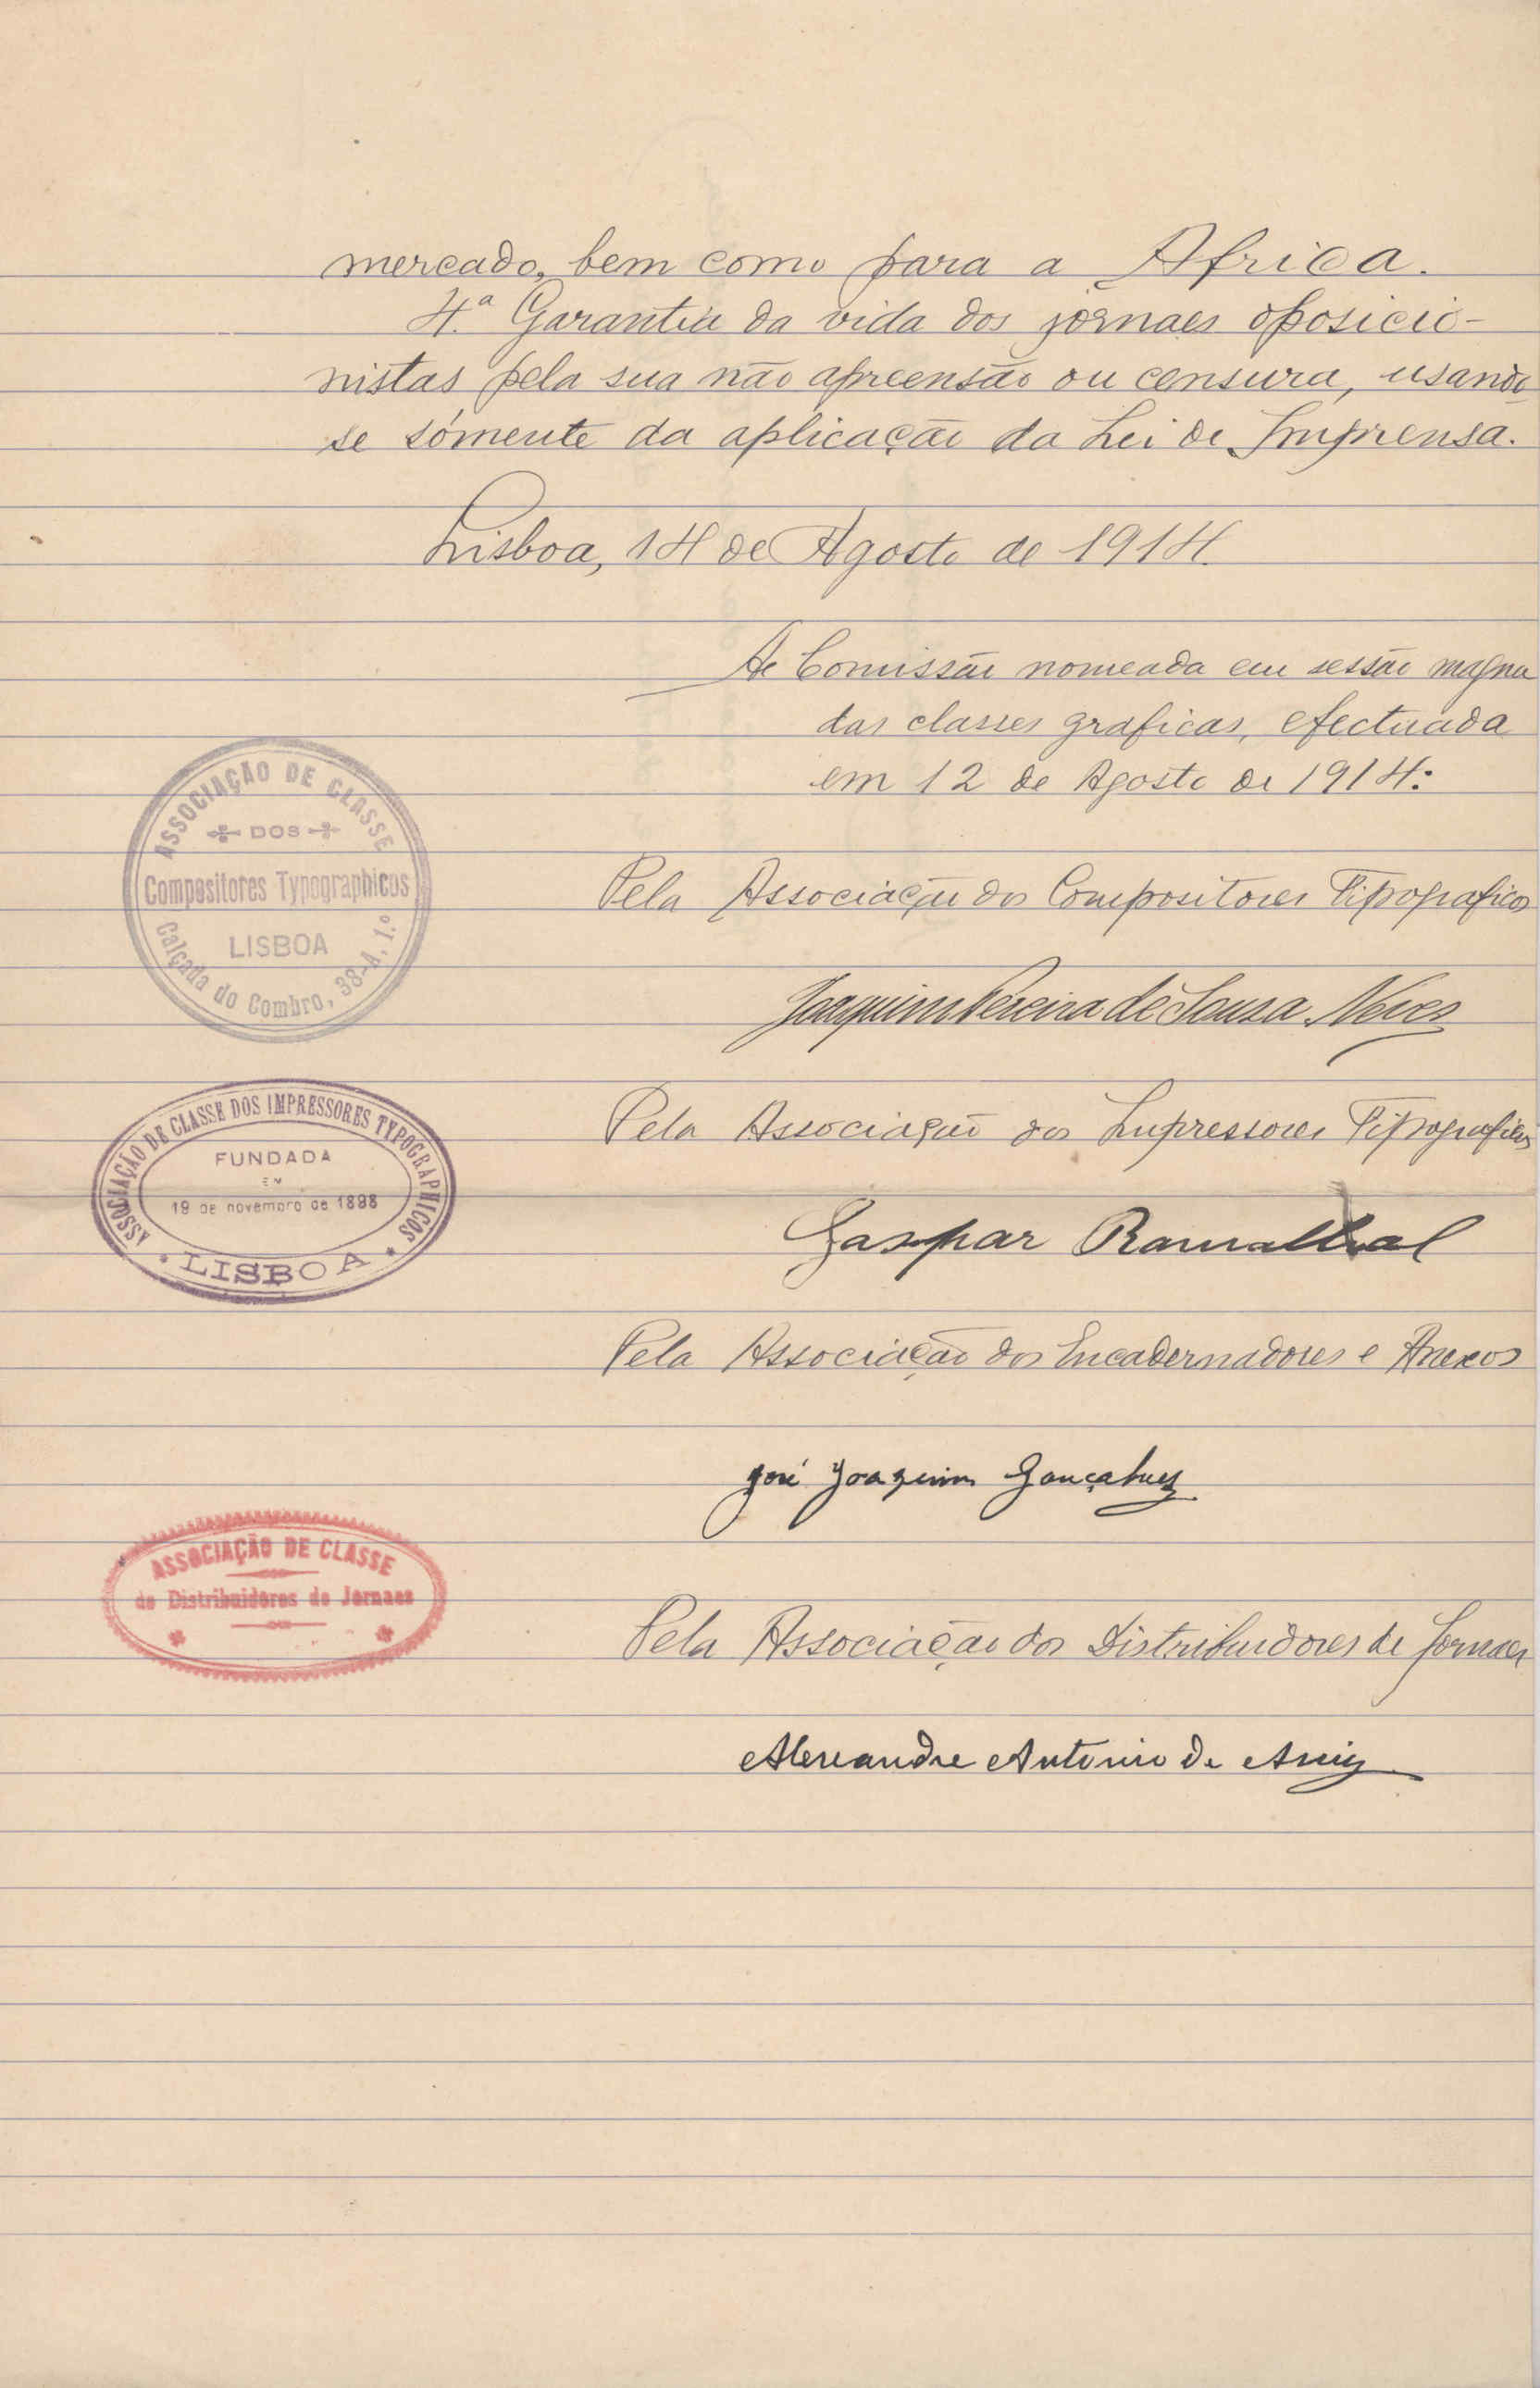 mercado, bem como para a Africa.
4.ª Garantia da vida dos jornaes oposicio-
nistas pela sua não apreensão ou censura, usando
se sómente da aplicação da Lei de Imprensa.
Lisboa, 14 de Agosto de 1914.
A Comissão nomeada em sessão magna
das classes graficas, efectuada
em 12 de Agosto de 1914:
ASSOCIAÇÃO DE CLASSE
DOS
Compositores Typographicos
LISBOA
Calçada do Combro, 38-A, 1.º
Pela Associação dos Compositores Tipograficos
Joaquim Pereira de Sousa Neves
ASSOCIAÇÃO DE CLASSE DOS IMPRESSORES TYPOGRAPHICOS
FUNDADA
EM
19 de novembro de 1898
LISBOA
Pela Associação dos Impressores Tipograficos
Gaspar
Pela Associação dos Encadernadores e Anexos
José Joaquim Gonçalves
ASSOCIAÇÃO DE CLASSE
de Distribuidores de Jornaes
Pela Associação dos Distribuidores de Jornaes
Alexandre Antonio de Assis